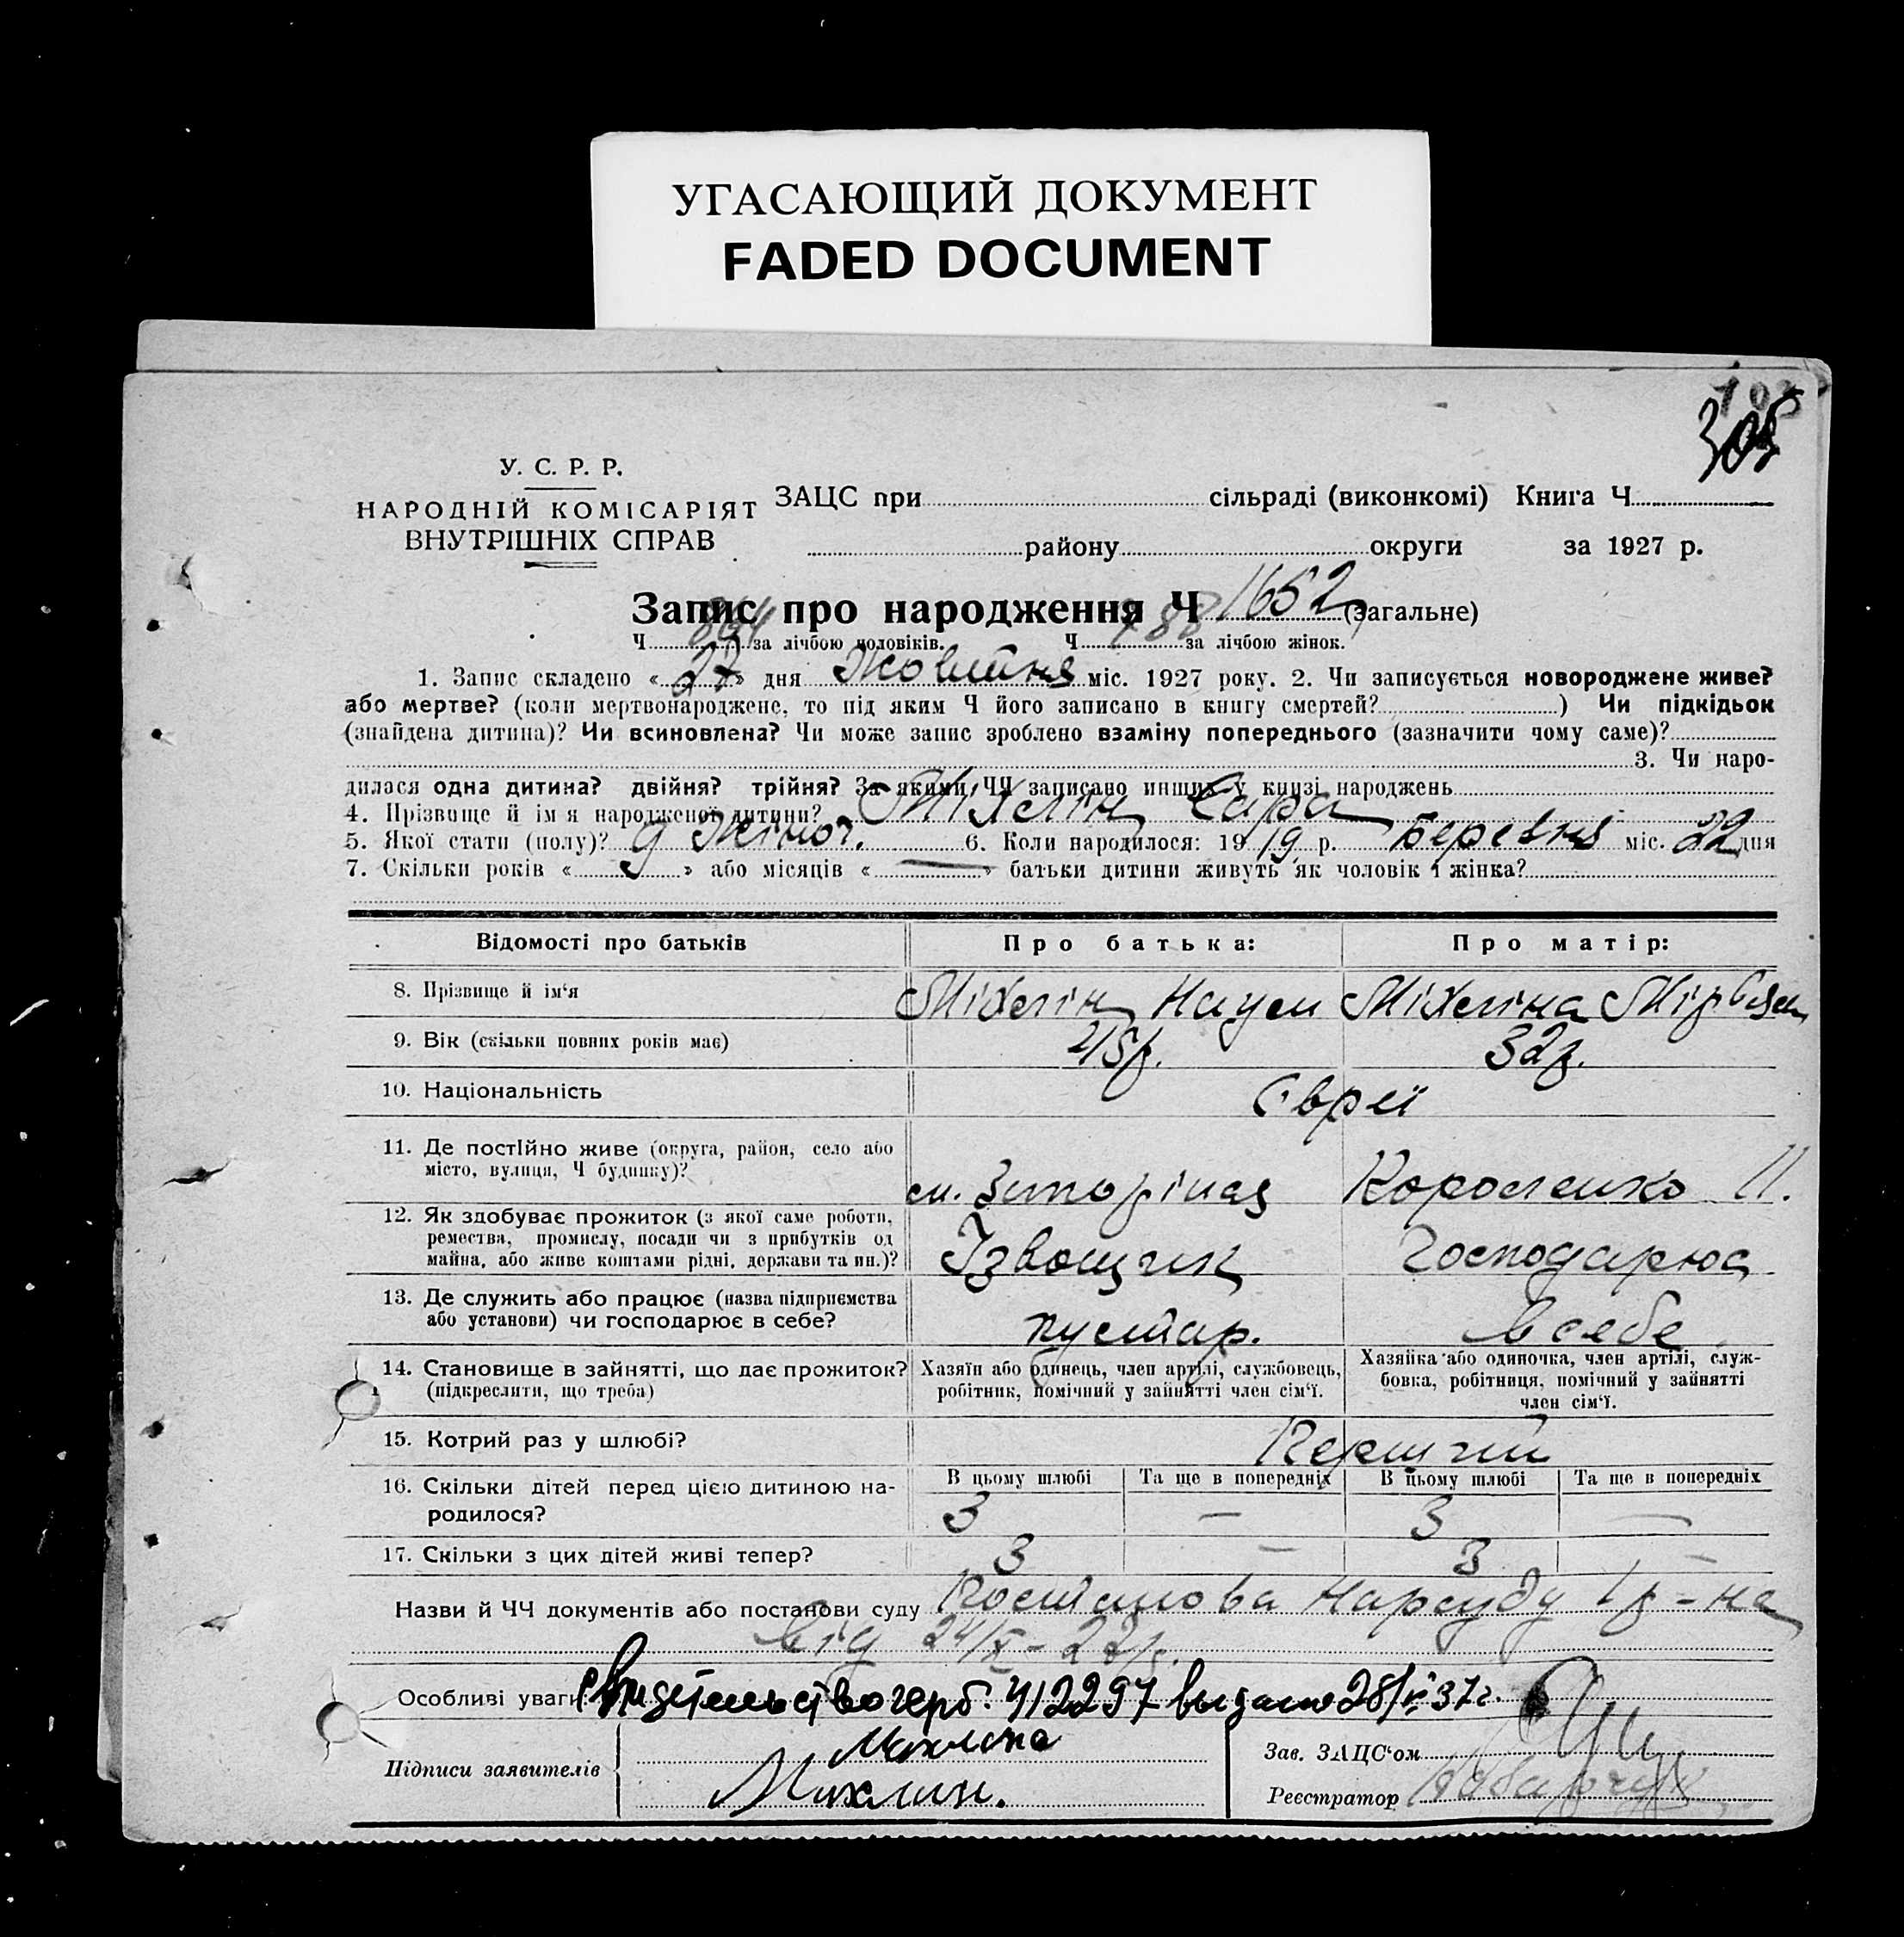 УГАСАЮЩИЙ ДОКУМЕНТ
FADED DOCUMENT
305
У. С. Р. Р.
НАРОДНІЙ КОМІСАРІЯТ
ВНУТРІШНІХ СПРАВ
ЗАЦС при сільраді (виконкомі) Книга Ч
району округи за 1927 р.
Запис про народження Ч 1652 (загальне)
Ч 864 за лічбою чоловіків. Ч 788 за лічбою жінок.
1. Запис складено « 27 » дня Жовтня міс. 1927 року. 2. Чи записується новороджене живе?
або мертве? (коли мертвонароджене, то під яким Ч його записано в книгу смертей? ) Чи підкідьок
(знайдена дитина)? Чи всиновлена? Чи може запис зроблено взаміну попереднього (зазначити чому саме)?
3. Чи наро-
дилася одна дитина? двійня? трійня? За якими ЧЧ записано инших у книзі народжень
4. Прізвище й ім'я народженої дитини? Міхелін Сара
5. Якої стати (полу)? Жіноч. 6. Коли народилося: 1919 р. Березня міс. 22 дня
7. Скільки років « » або місяців « — » батьки дитини живуть як чоловік і жінка?
Відомості про батьків
Про батька:
Про матір:
8. Прізвище й ім'я
Міхелін Наум
Міхеліна
9. Вік (скільки повних років має)
45р.
32р.
10. Національність
Євреї
11. Де постійно живе (округа, район, село або
місто, вулиця, Ч будинку)?
Короленко 11.
12. Як здобуває прожиток (з якої саме роботи,
ремества, промислу, посади чи з прибутків од
майна, або живе коштами рідні, держави та ин.)?
Ізвощик
Господарює
13. Де служить або працює (назва підприємства
або установи) чи господарює в себе?
кустар.
в себе
14. Становище в зайнятті, що дає прожиток?
(підкреслити, що треба)
Хазяїн або одинець, член артілі, службовець,
робітник, помічний у зайнятті член сім'ї.
Хазяйка або одиночка, член артілі, служ-
бовка, робітниця, помічний у зайнятті
член сім'ї.
15. Котрий раз у шлюбі?
Перший
16. Скільки дітей перед цією дитиною на-
родилося?
В цьому шлюбі
Та ще в попередніх
В цьому шлюбі
Та ще в попередніх
3 — 3 —
17. Скільки з цих дітей живі тепер?
3 — 3 —
Назви й ЧЧ документів або постанови суду Постанова Нарсуду 1 р-на
від
Особливі уваги Свидетельство герб. 412297 выдано 37г.
Підписи заявителів
Михлин.
Зав. ЗАЦС'ом
Реєстратор